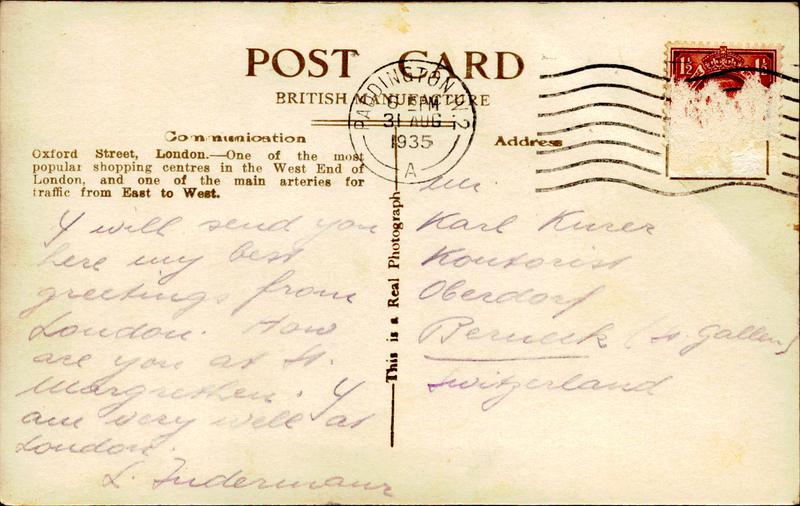 POST CARD
BRITISH MANUFACTURE
PADDINGTON. W.2
6 15 PM
31 AUG
1935
A
1½ 1½
Communication
Address
Oxford Street, London.—One of the most
popular shopping centres in the West End of
London, and one of the main arteries for
traffic from East to West.
This is a Real Photograph
I will send you
here my best
greetings from
London. How
are you at St.
Margrethen. I
am very well at
London.
Mr.
Karl Kurer
Kontorist
Oberdorf
Berneck (St. Gallen)
Switzerland